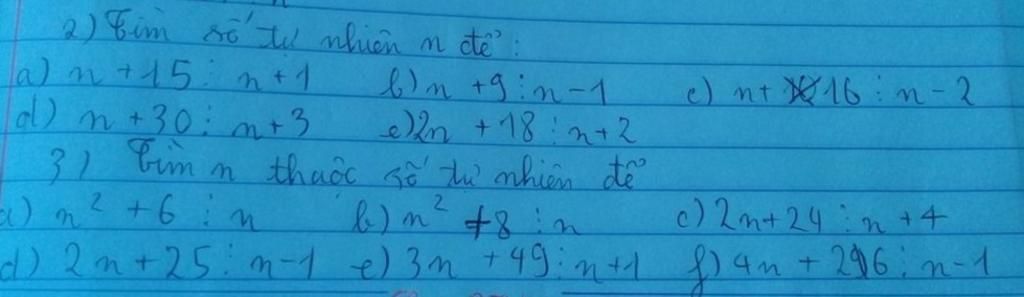 2) Tìm số tự nhiên n để :
a) n + 15 ⋮ n + 1 b) n + 9 ⋮ n - 1 c) n + 16 ⋮ n - 2
d) n + 30 ⋮ n + 3 e) 2n + 18 ⋮ n + 2
3) Tìm n thuộc số tự nhiên để
a) n² + 6 ⋮ n b) n² + 8 ⋮ n c) 2n + 24 ⋮ n + 4
d) 2n + 25 ⋮ n - 1 e) 3n + 49 ⋮ n + 1 f) 4n + 26 ⋮ n - 1